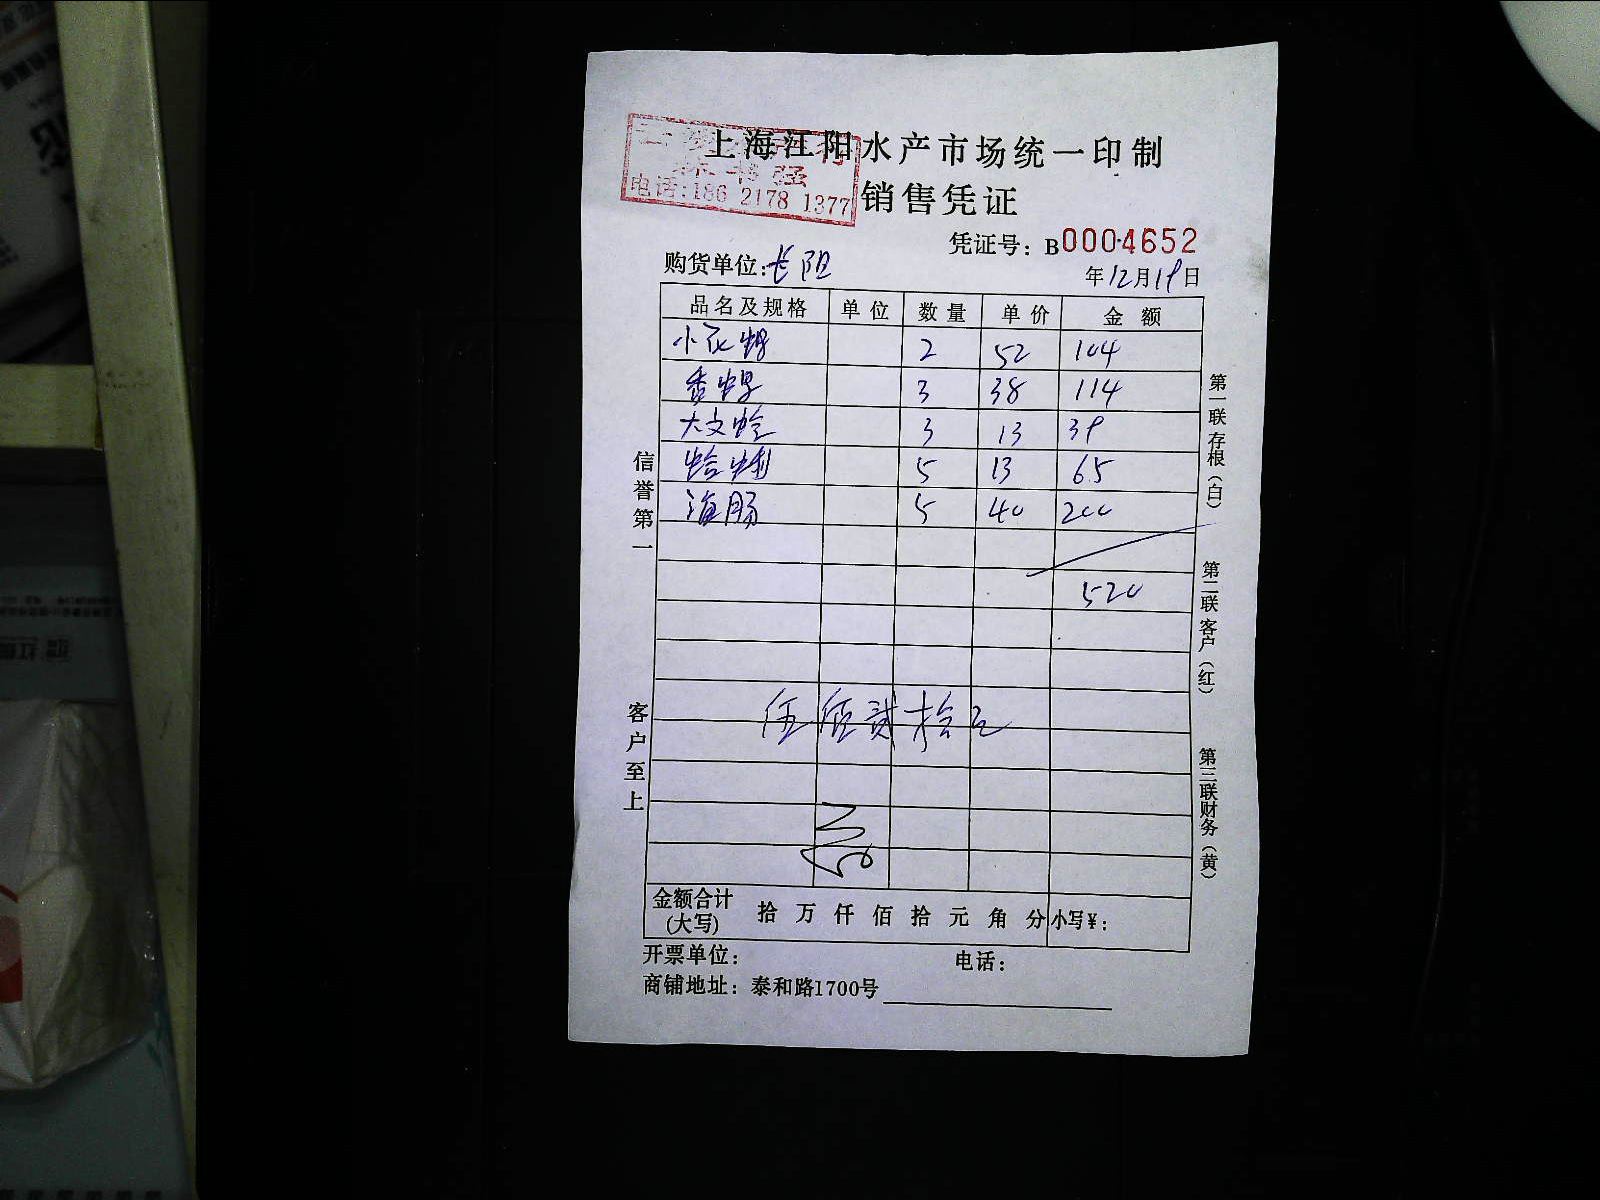 上海江阳水产市场统一印制
电话:186 2178 1377
销售凭证
凭证号: B0004652
购货单位:长阳
年12月19日
品名及规格 单位 数量 单价 金额
小花螺 2 52 104
香螺 3 38 114
大文蛤 3 13 39
蛤蜊 5 13 65
海肠 5 40 200
520
伍佰贰拾元
金额合计(大写) 拾 万 仟 佰 拾 元 角 分 小写¥:
开票单位: 电话:
商铺地址: 泰和路1700号
信誉第一
客户至上
第一联存根(白)
第二联客户(红)
第三联财务(黄)